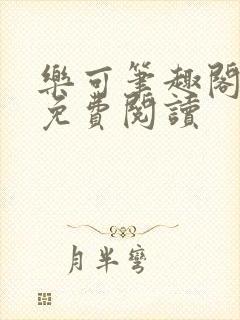 樂可筆趣閣
免費閱讀
月半彎